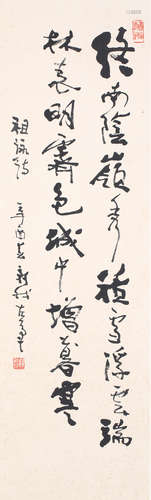 終南陰嶺秀積雪浮雲端
林表明霽色城中增暮寒
祖詠詩
辛酉春新我左筆